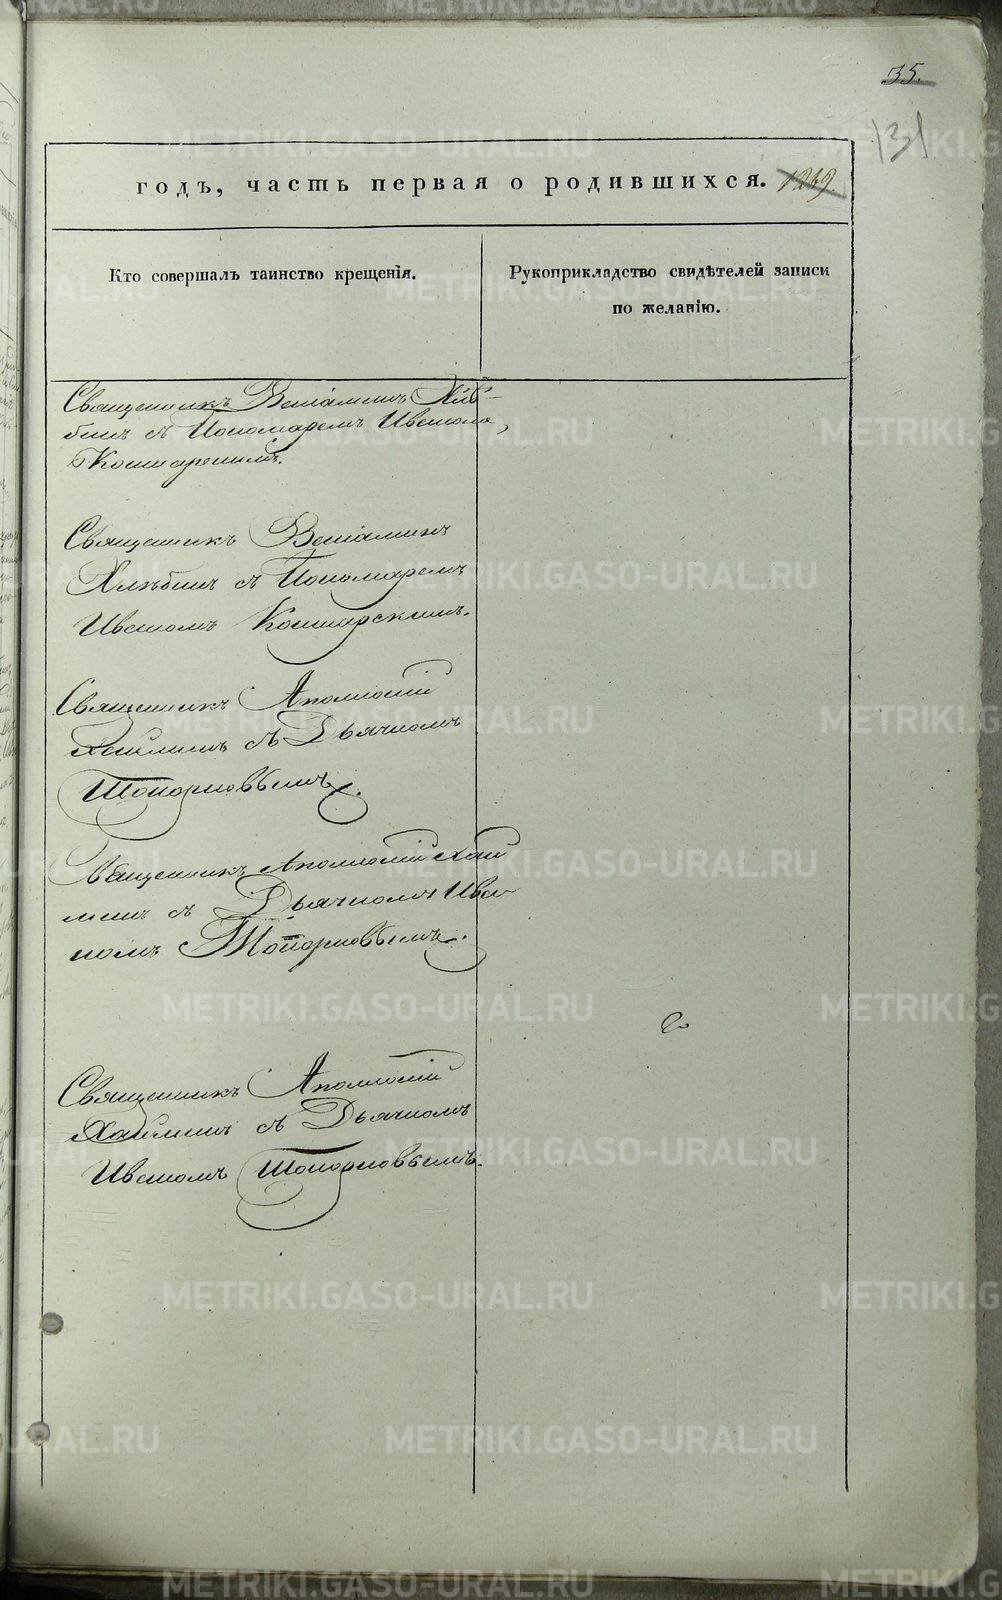 35.
131
годъ, часть первая о родившихся. 1269.
Кто совершалъ таинство крещенія.
Рукоприкладство свидѣтелей записи
по желанію.
Священникъ Веніаминъ Хлѣ-
бинъ съ Пономаремъ Иваномъ
Священникъ Веніаминъ
Хлѣбинъ съ Пономаремъ
Иваномъ Кошкарскимъ.
Священникъ Аполлосій
съ Дьячкомъ
Топорковымъ.
Священникъ Аполлосій
съ Дьячкомъ Ива-
номъ Топорковымъ.
Священникъ Аполлосій
съ Дьячкомъ
Иваномъ Топорковымъ.
METRIKI.GASO-URAL.RU